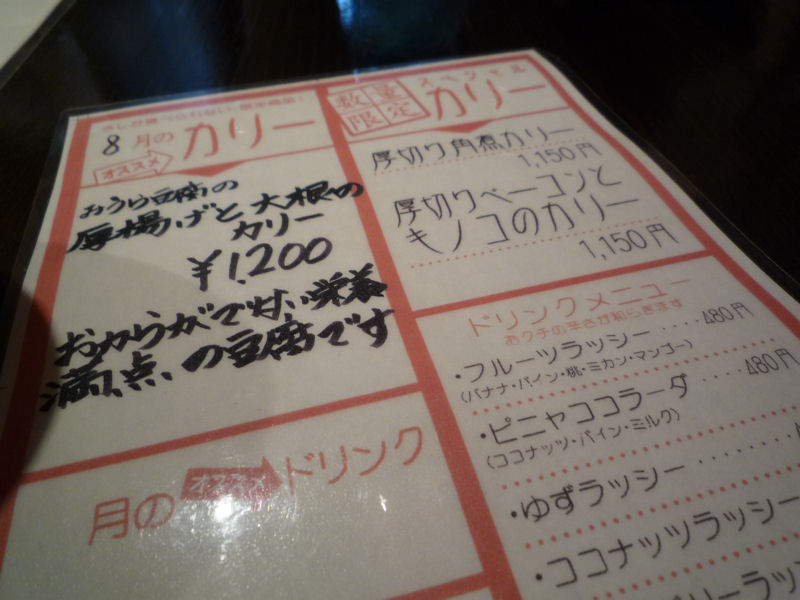 8月の カリー
オススメ
おうら豆腐の
厚揚げと大根の
カリー
¥1,200
おからがで甘い栄養
満点、の豆腐です
月の オススメ ドリンク
数量限定 スペシャル カリー
厚切り角煮カリー
1,150円
厚切りベーコンと
キノコのカリー
1,150円
ドリンクメニュー
おクチの辛さが和らぎます
・フルーツラッシー ････480円
(バナナ・パイン・桃・ミカン・マンゴー)
・ピニャココラーダ ････480円
(ココナッツ・パイン・ミルク)
・ゆずラッシー
・ココナッツラッシー